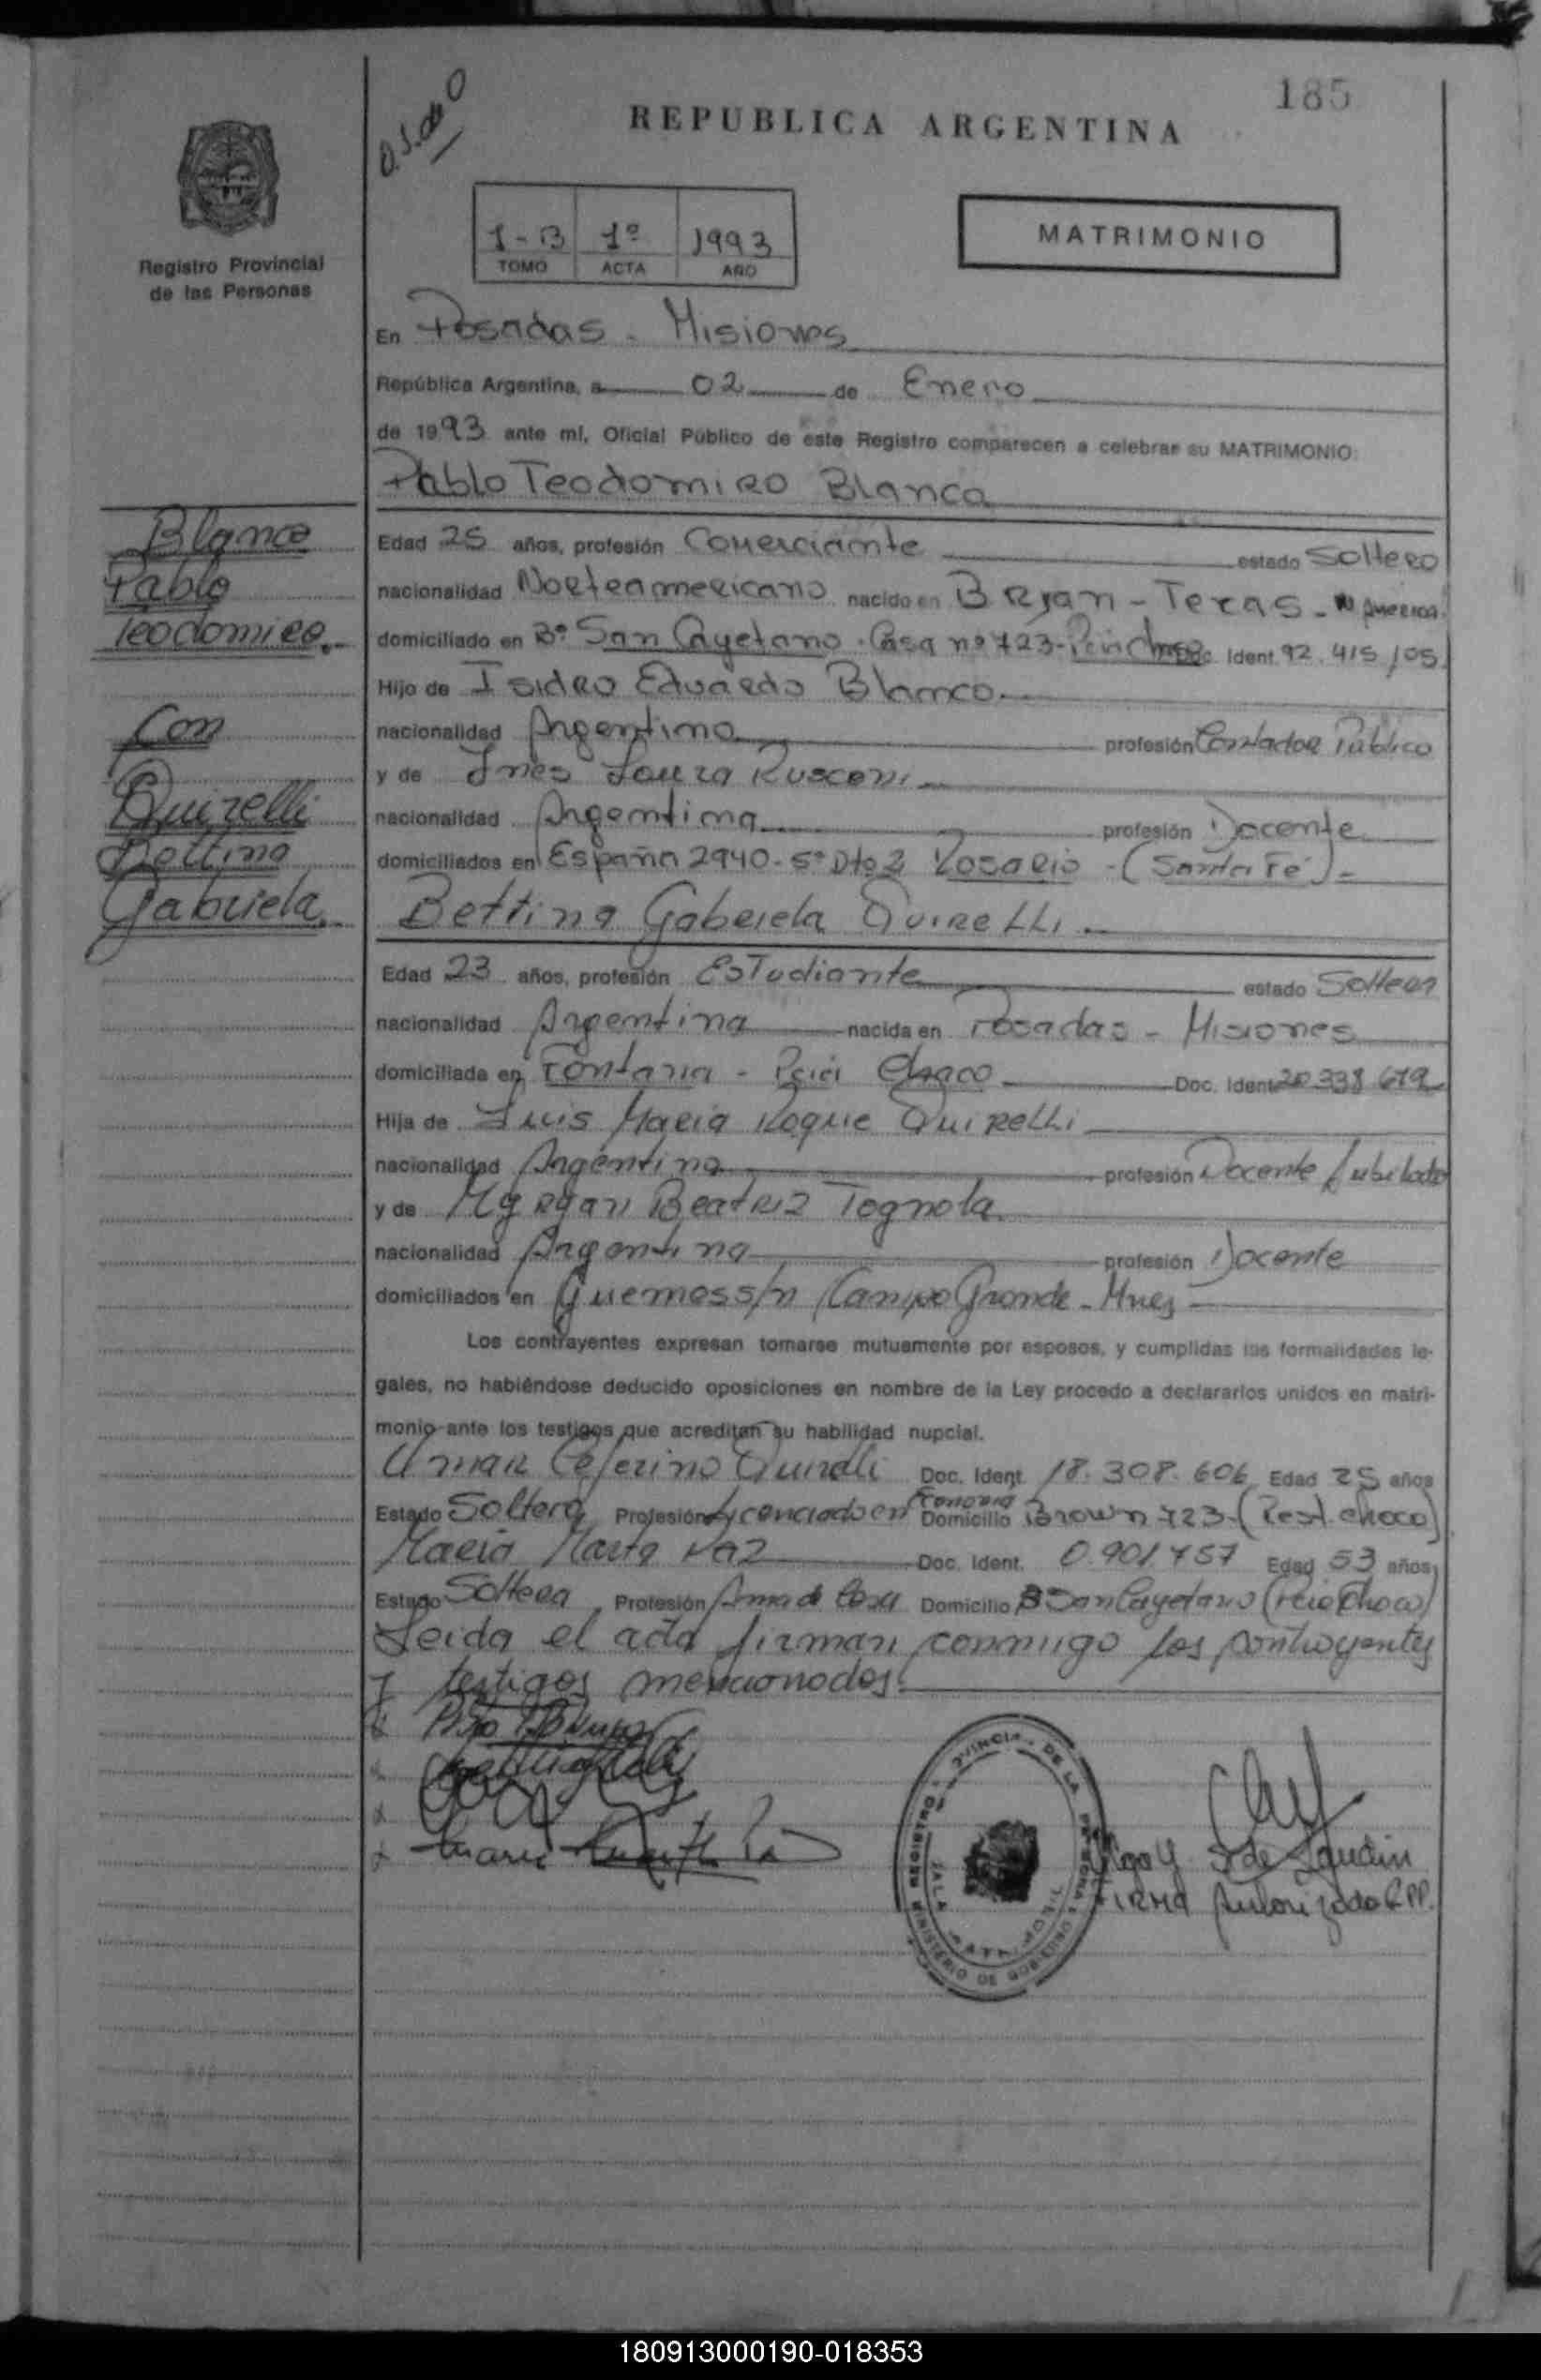 185
O.S. de O
REPUBLICA ARGENTINA
Registro Provincial
de las Personas
1-B 1º 1993
TOMO ACTA AÑO
MATRIMONIO
En Posadas - Misiones
República Argentina, a 02 de Enero
de 1993 ante mí, Oficial Público de este Registro comparecen a celebrar su MATRIMONIO:
Pablo Teodomiro Blanco
Blanco
Pablo
Teodomiro.
Con
Quirelli
Bettina
Gabriela.
Edad 25 años, profesión Comerciante estado Soltero
nacionalidad Norteamericano nacido en Bryan - Texas - N America.
domiciliado en Bº San Cayetano - Casa nº 723 - Doc. Ident. 92.415.105
Hijo de Isidro Eduardo Blanco.
nacionalidad Argentino profesión Contador Público
y de Ines Laura Rusconi
nacionalidad Argentina profesión Docente
domiciliados en España 2940 - 5º Dto 2 Rosario - (Santa Fé) -
Bettina Gabriela Quirelli
Edad 23 años, profesión Estudiante estado Soltera
nacionalidad Argentina nacida en Posadas - Misiones
domiciliada en Fontana - Pcia Chaco Doc. Ident. 20.338.679
Hija de Luis Maria Roque Quirelli
nacionalidad Argentino profesión Docente Jubilado
y de Myryan Beatriz Tognola
nacionalidad Argentina profesión Docente
domiciliados en Guemes s/n Campo Grande - Mnes
Los contrayentes expresan tomarse mutuamente por esposos, y cumplidas las formalidades le-
gales, no habiéndose deducido oposiciones en nombre de la Ley procedo a declararlos unidos en matri-
monio ante los testigos que acreditan su habilidad nupcial.
Omar Ceferino Quirelli Doc. Ident. 18.308.606 Edad 25 años
Estado Soltero Profesión Licenciado en Economia Domicilio Brown 723 - (Rest. Chaco)
Maria Marta Paz Doc. Ident. 0.901.757 Edad 53 años
Estado Soltera Profesión Ama de Casa Domicilio Bº San Cayetano (Pcia Chaco)
Leida el acta firman conmigo los contrayentes
y testigos mencionados.
Maria Marta Paz
REGISTRO PROVINCIAL DE LAS PERSONAS
MINISTERIO DE GOBIERNO
FIRMA Autorizada RPP.
180913000190-018353